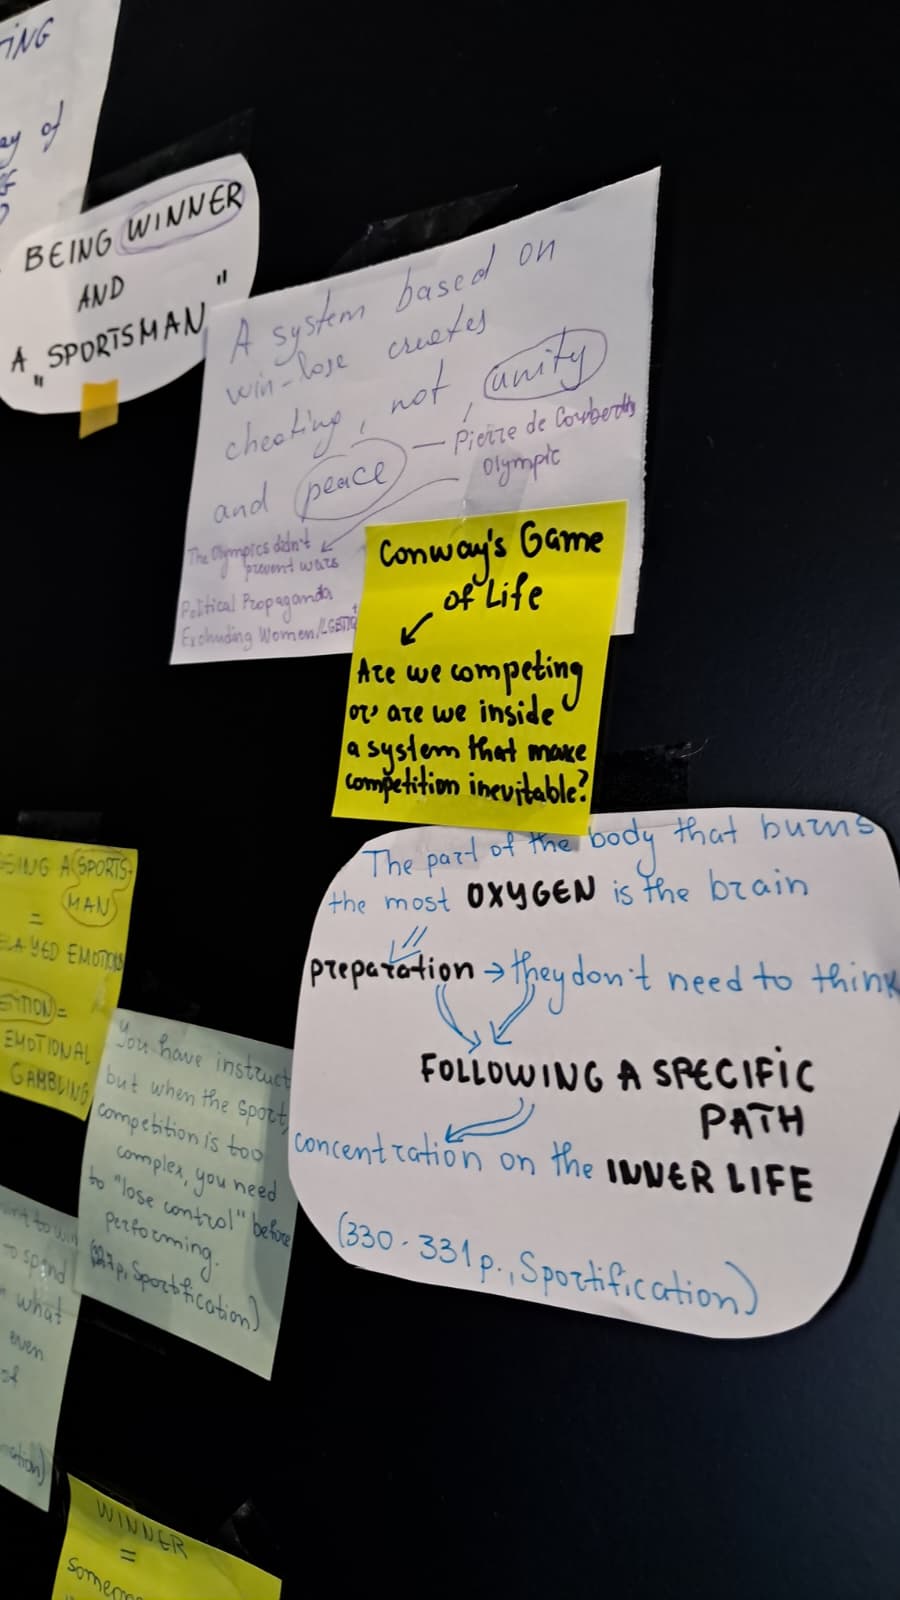 TING
ay of
BEING WINNER
AND
A "SPORTSMAN"
A system based on
win-lose creates
cheating, not, unity
and peace — Pierre de Couberdts
Olympic
The Olympics didn't
prevent wars
Political Propaganda
Excluding Women/LGBTIQ+
Conway's Game
of Life
Are we competing
or are we inside
a system that make
competition inevitable?
The part of the body that burns
the most OXYGEN is the brain
preparation → they don't need to think
FOLLOWING A SPECIFIC
PATH
concentration on the INNER LIFE
(330-331p., Sportification)
A SPORTS-
MAN
=
EMOTIONS
=
EMOTIONAL
GAMBLING
You have instruct
but when the sport,
competition is too
complex, you need
to "lose control" before
performing.
p, Sportification)
to win
to spend
what
even
of
WINNER
=